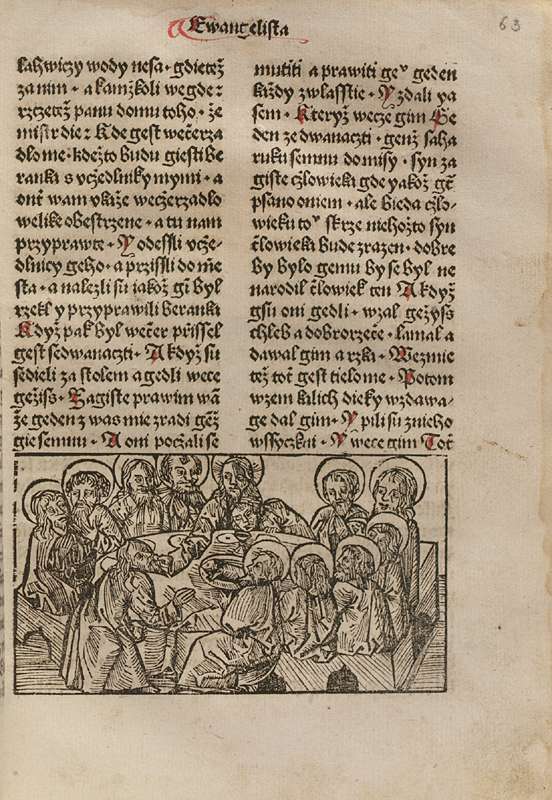 Ewangelista
63
lahwiczy wody nesa · gdietez̃
za nim · a kamžkoli wegde ː
rzczetež panu domu toho · že
mistr die ː Kde gest weczerza
dlo me · kdežto budu giesti be
ranka s vczedlniky mymi · a
ont̃ wam vkáže weczierzadlo
welike obestrzene · a tu nam
przyprawte · Y odessli vcže-
dlnicy geho · a przissli do mě
sta · a nalezli su iakož gt̃ byl
rzekl y przyprawili beranka
Když pak byl weczer přissel
gest sedwanaczti · A když su
sedieli za stolem a gedli wece
gežiss · Zagiste prawim wã
že geden z was mie zradi gěž
gie semnu · A oni poczali se
mutiti a prawiti geᵛ geden
každy zwlasstie · Y zdali ya
sem · Kteryž wecze gim Ge
den ze dwanaczti · genž saha
ruku semnu do misy · syn za
giste czlowieka gde yakož gt̃
psano oniem · ale bieda czlo-
wieku toᵛ skrze niehožto syn
člowieka bude zrazen · dobre
by bylo gemu by se byl ne
narodil člowiek ten A když
gsu oni gedli · wzal gežyss
chleb a dobrorzecze · lamal a
dawal gim a rzka · Wezmie
tež tot̃ gest tielo me · Potom
wzem kalich dieky wzdawa-
ge dal gim · Y pili su znieho
wssyczkni · Y wece gim Tot̃